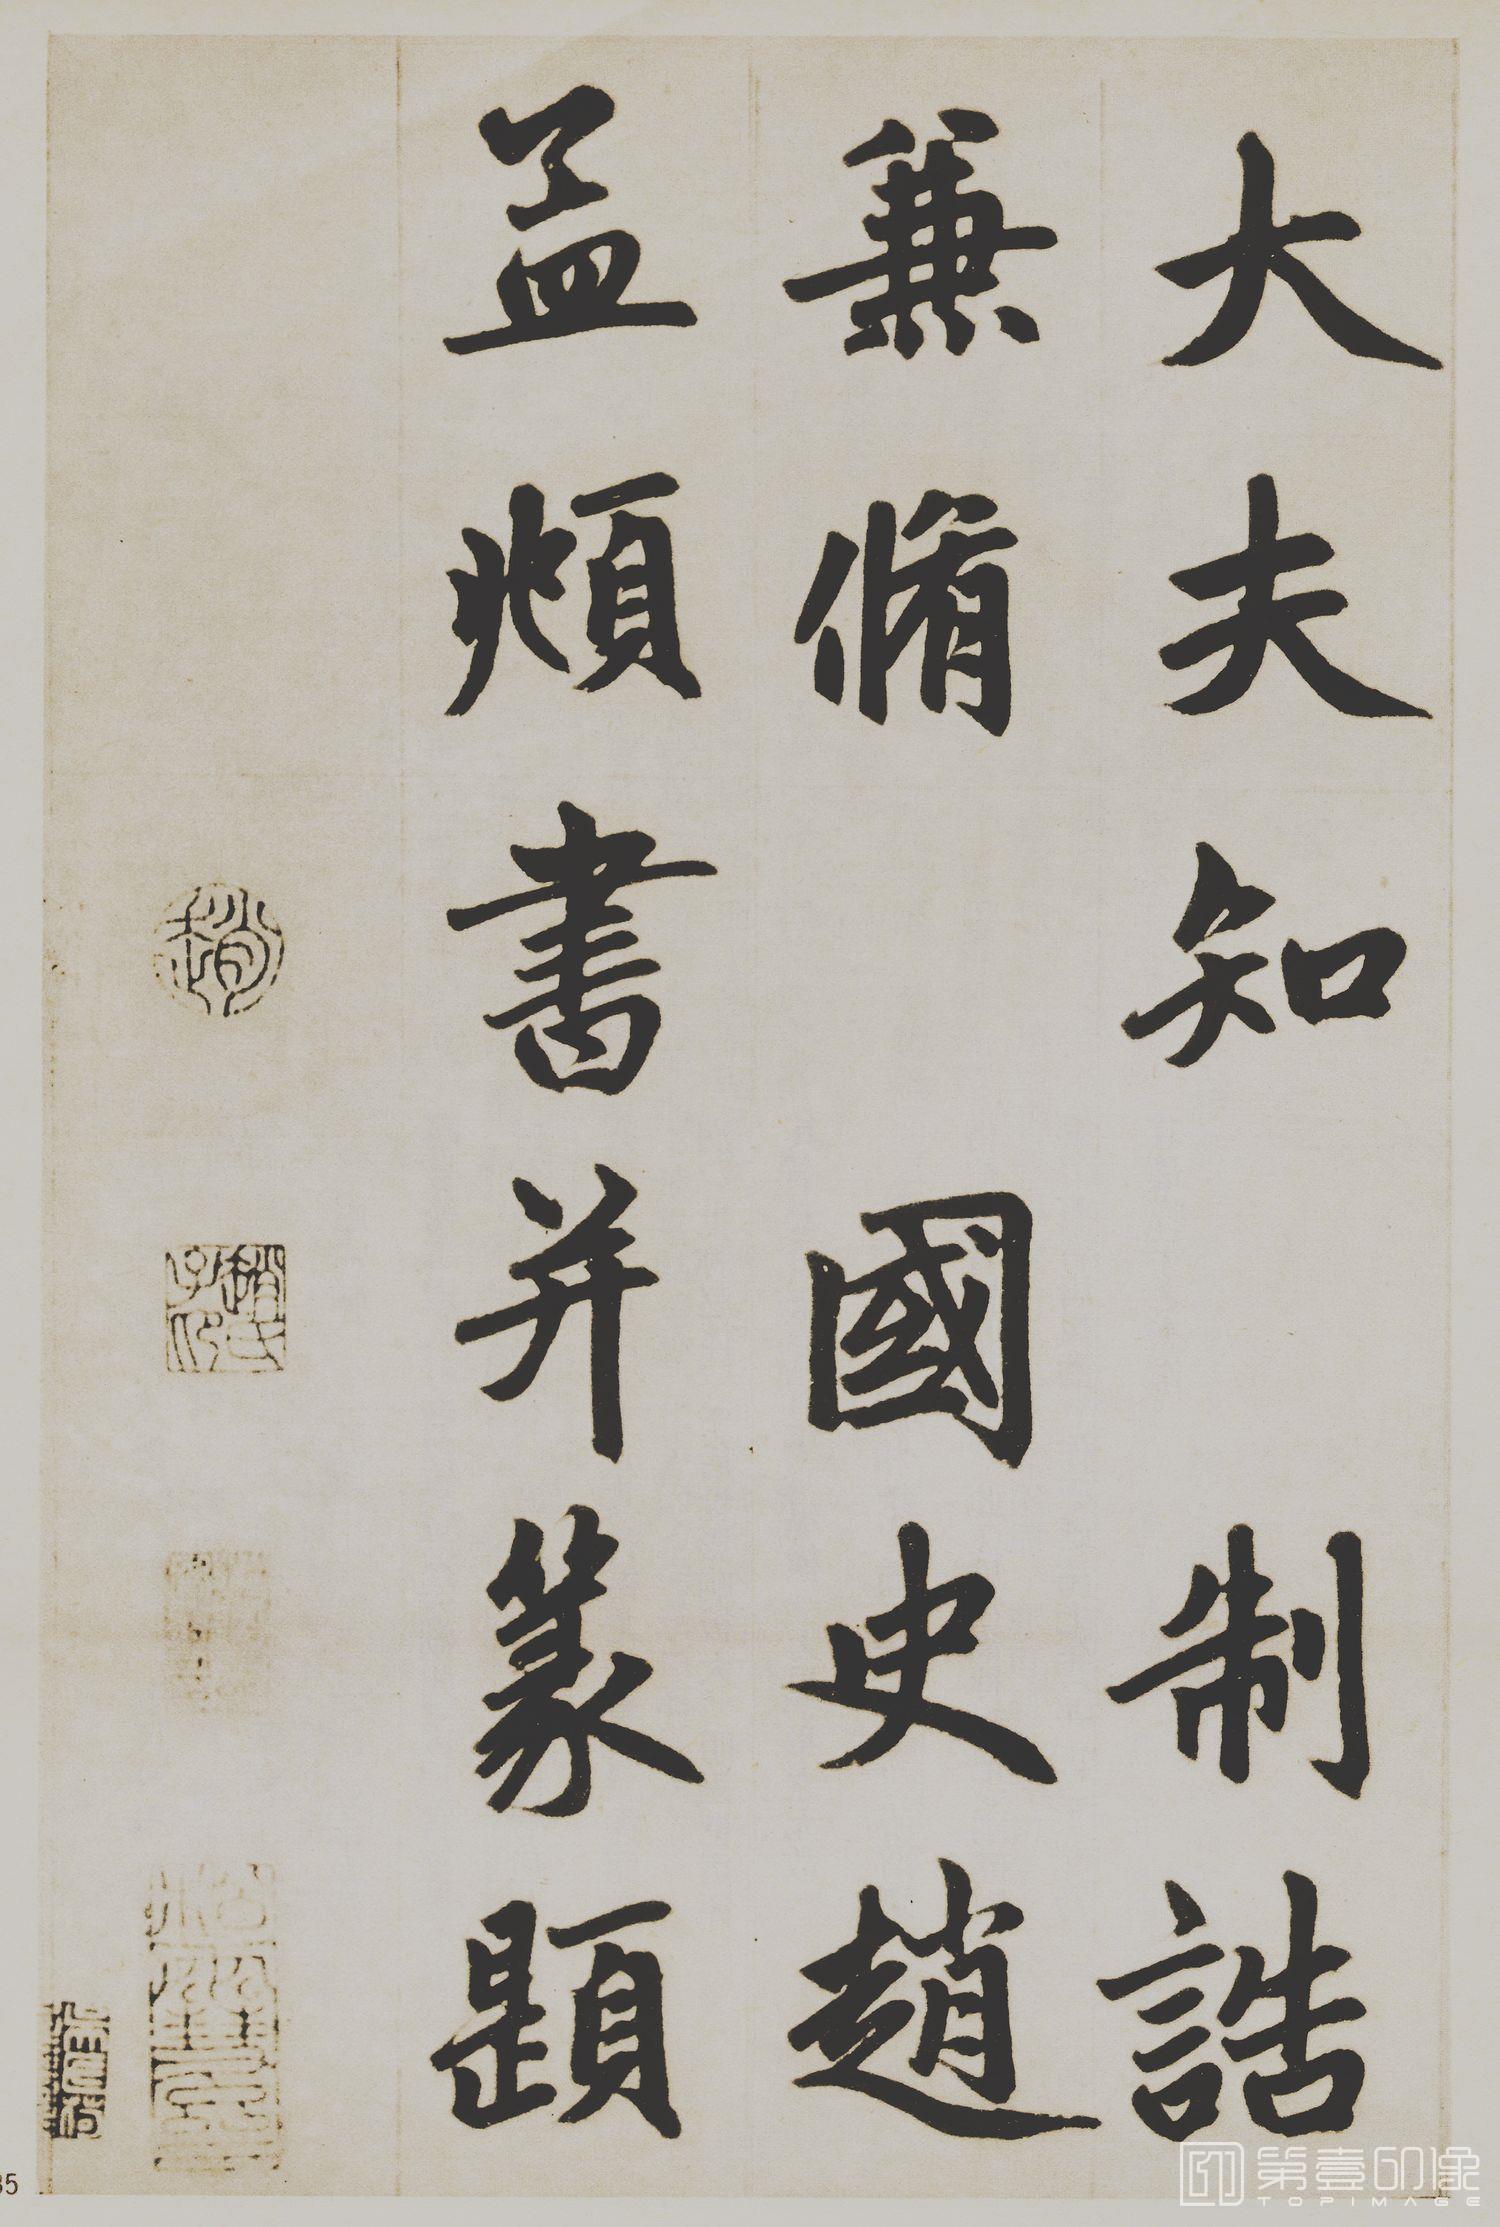 大夫知 制誥
兼脩 國史趙
孟頫書并篆題
趙
趙氏子昂
35
第壹印像
TOPIMAGE